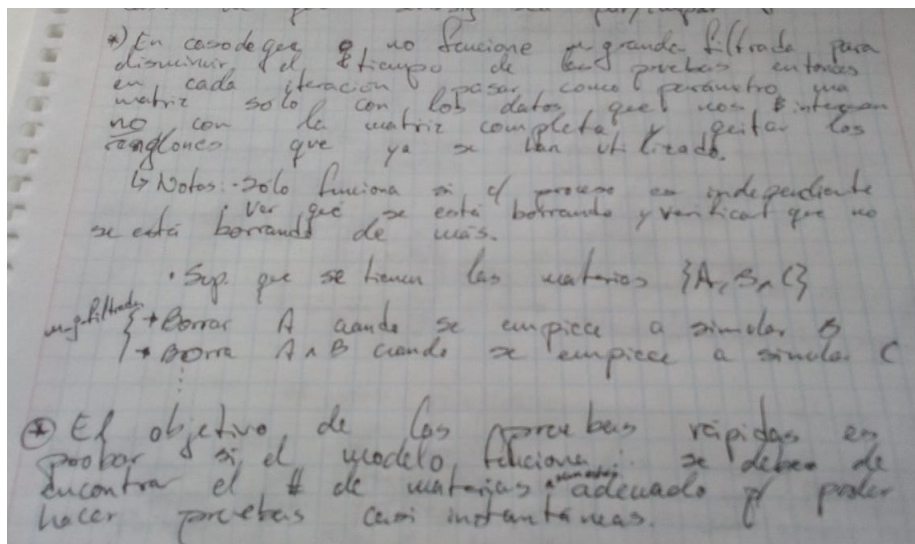 *) En caso de que no funcione m_grande_filtrada para
disminuir el tiempo de las pruebas entonces
en cada iteración pasar como parámetro una
matriz solo con los datos que nos integran
no con la matriz completa y quitar los
renglones que ya se han utilizado.
↳ Notas: - Sólo funciona si el proceso es independiente
· Ver que se está borrando y verificar que no
se está borrando de más.
· Sup. que se tienen las materias {A, B, C}
m_g_filtrada { → Borrar A cuando se empiece a simular B
→ Borra A ∧ B cuando se empiece a simular C
⊛ El objetivo de las pruebas rápidas es
probar si el modelo funciona ∴ se debe de
encontrar el # de materias adecuado p/ poder
hacer pruebas casi instantáneas.